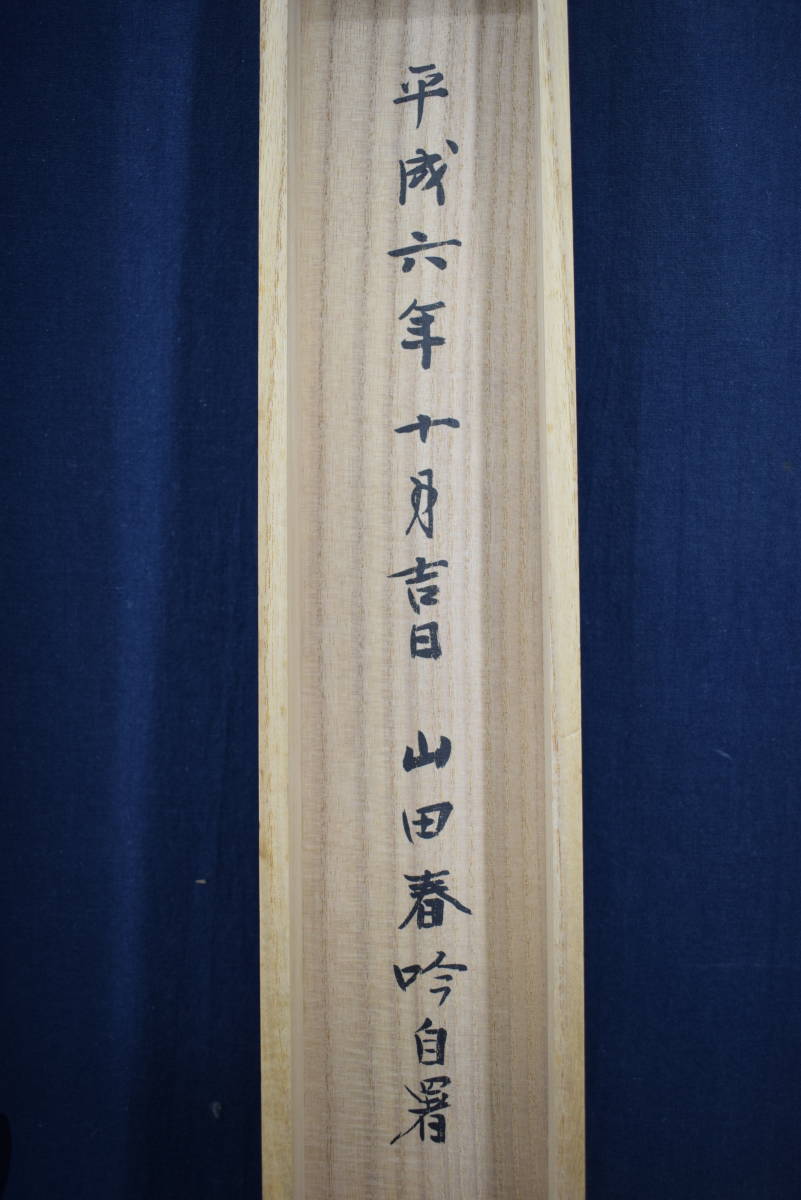 平成六年十月吉日 山田春吟自署